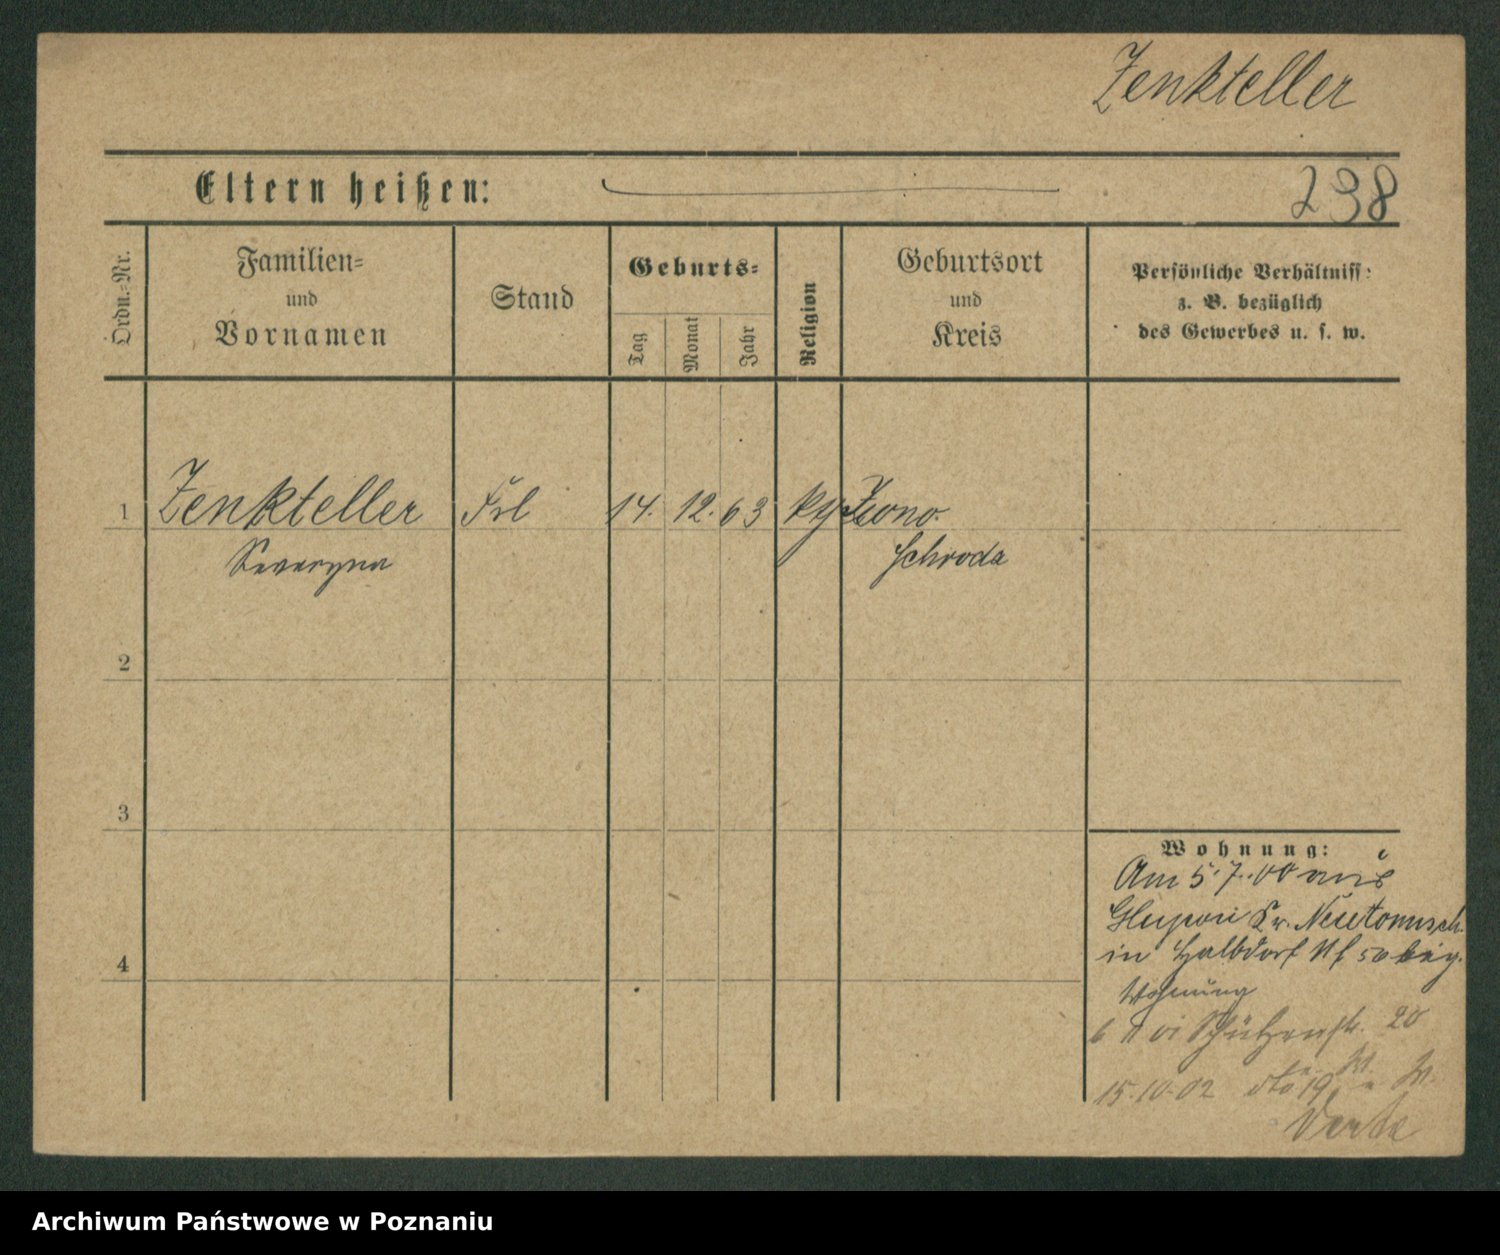 Zenkteller
Eltern heißen:
238
Ordn.-Nr.
Familien-
und
Vornamen
Stand
Geburts-
Tag
Monat
Jahr
Religion
Geburtsort
und
Kreis
Persönliche Verhältniss:
z. B. bezüglich
des Gewerbes u. s. w.
1
Zenkteller Frl 14. 12. 63
Severyna Schroda
2
3
4
Wohnung:
Am 5.7.00 aus
Kr. Neutomisch.
in Halbdorf
Wohnung
6 Schützenstr. 20
15.10.02 dto 19
Archiwum Państwowe w Poznaniu